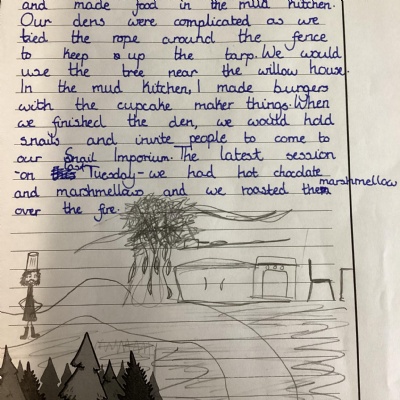 and made food in the mud kitchen.
Our dens were complicated as we
tied the rope around the fence
to keep up the tarp. We would
use the tree near the willow house.
In the mud kitchen, I made burgers
with the cupcake maker things. When
we finished the den, we would hold
snails and invite people to come to
our Snail Imporium. The latest session
-on last Tuesday- we had hot chocolate
and marshmallows and we roasted the marshmellow
over the fire.